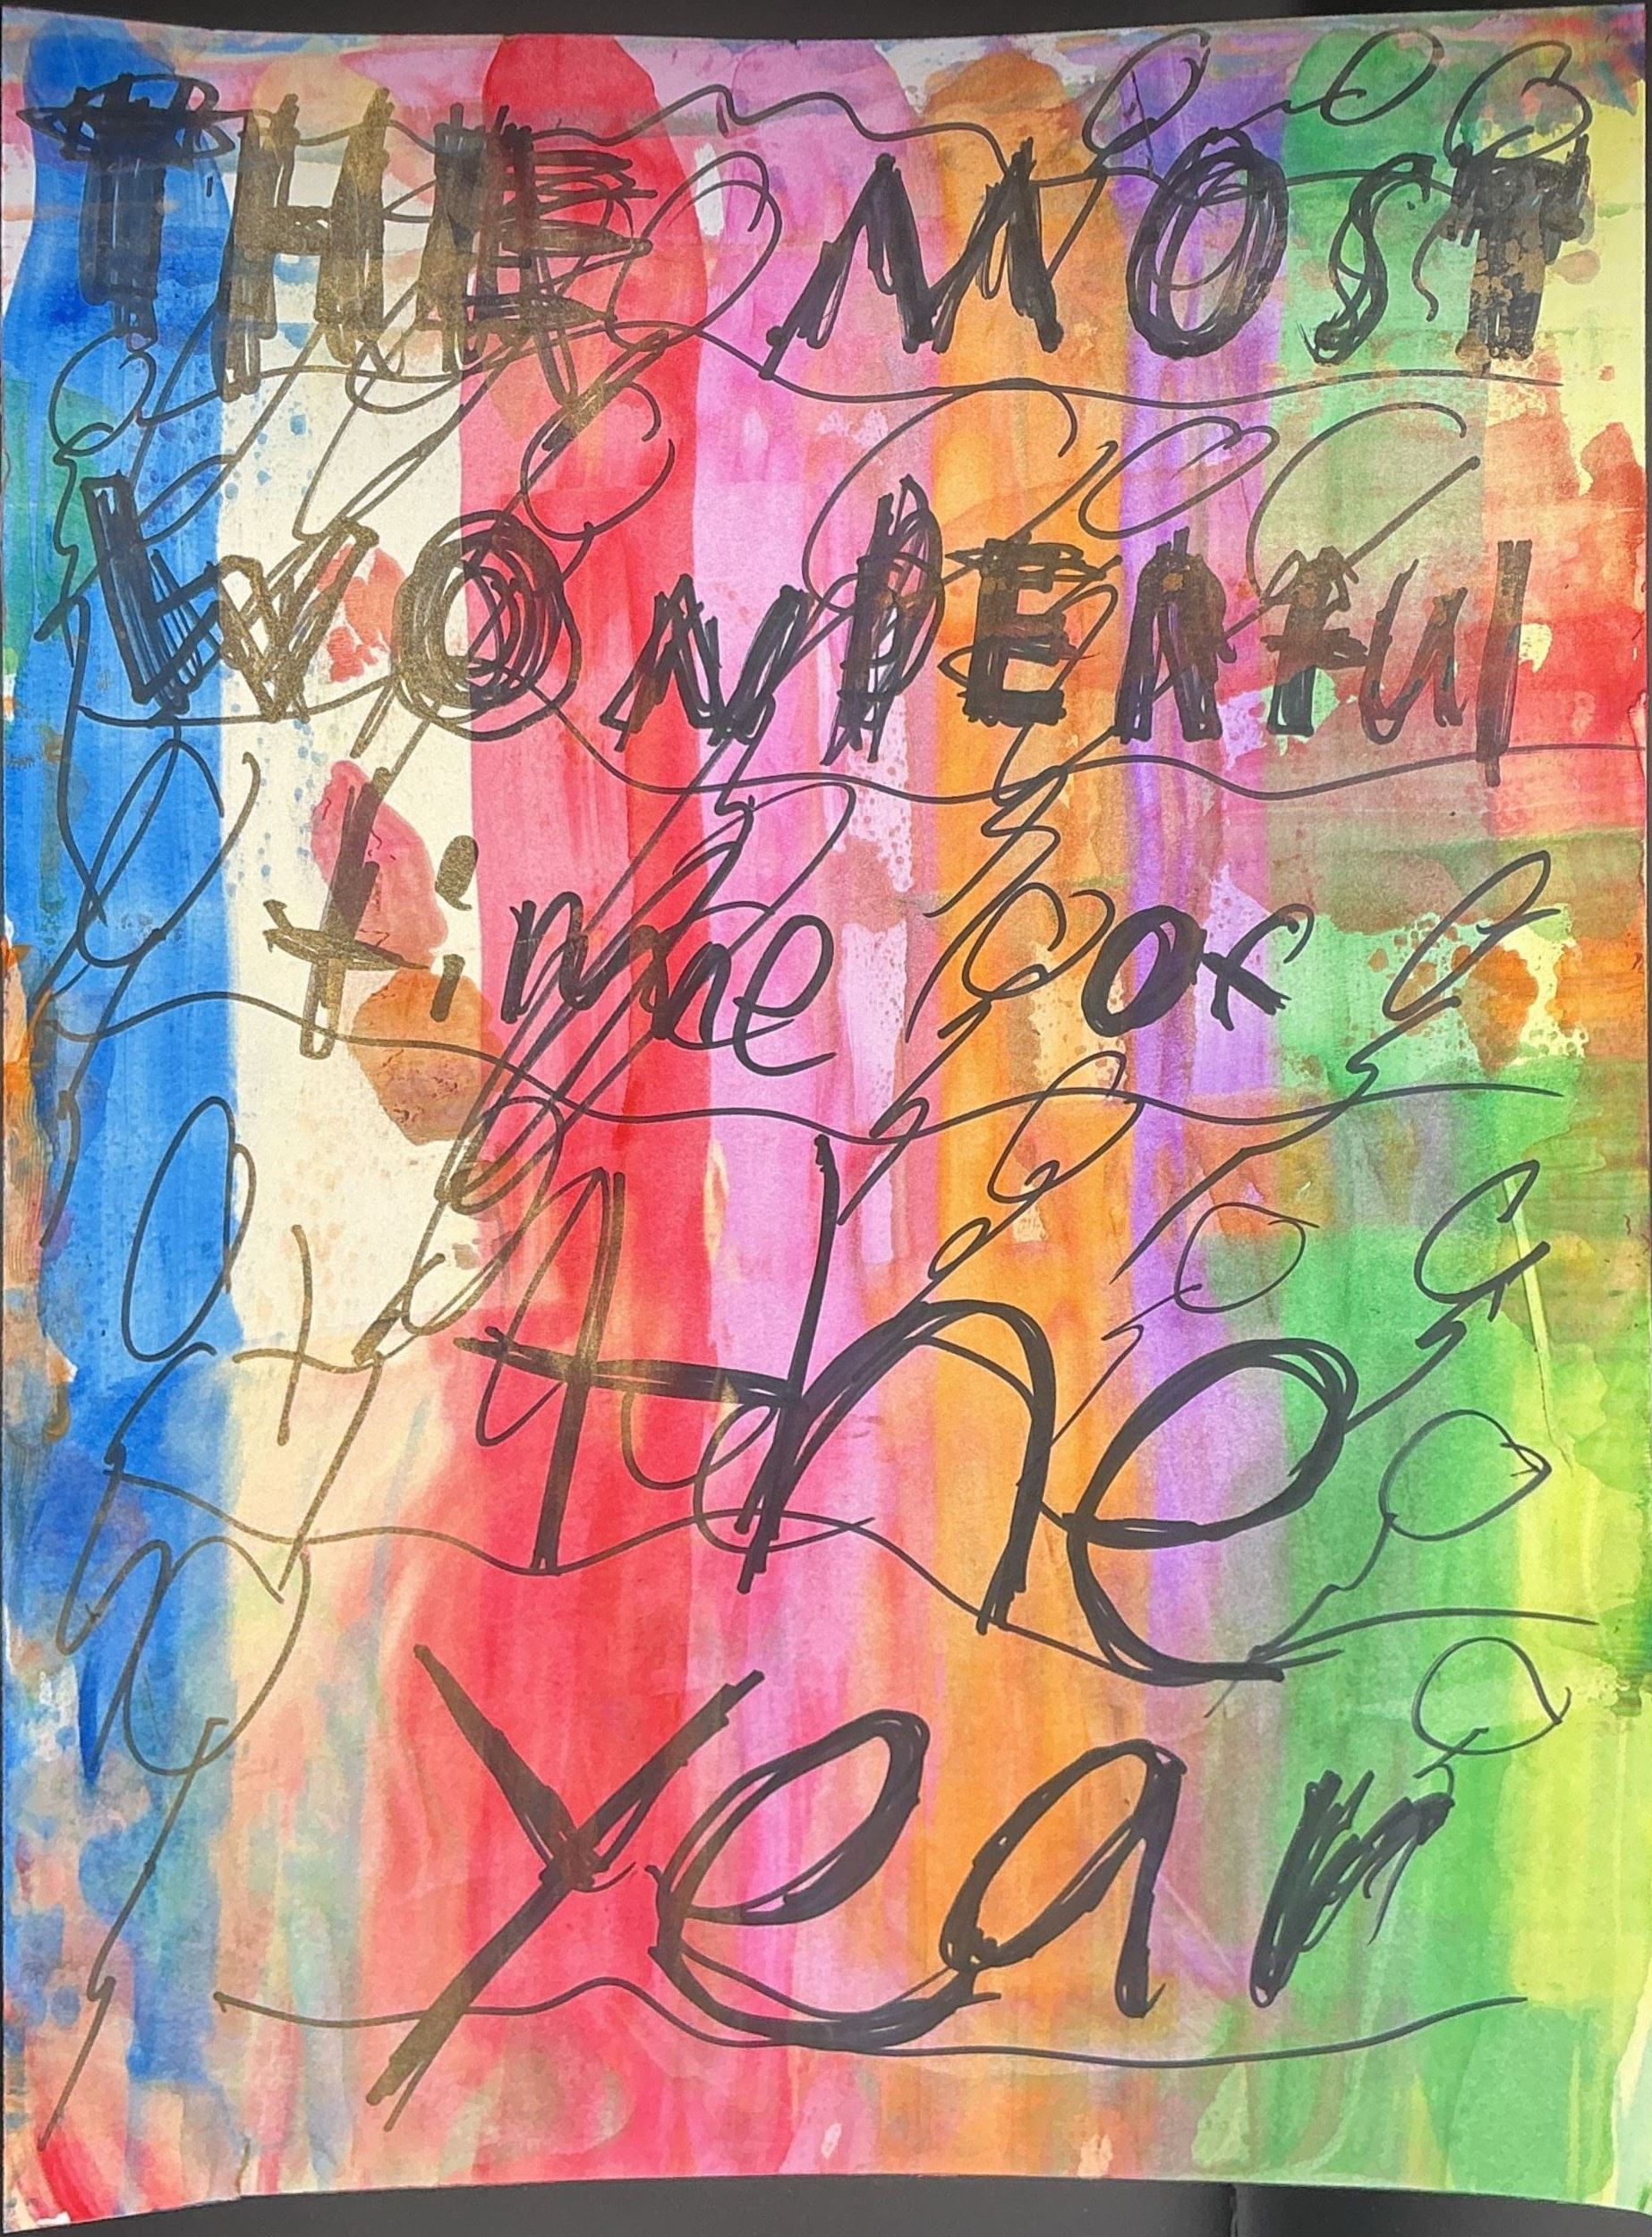 THE MOST
WONDERful
time of
the
year